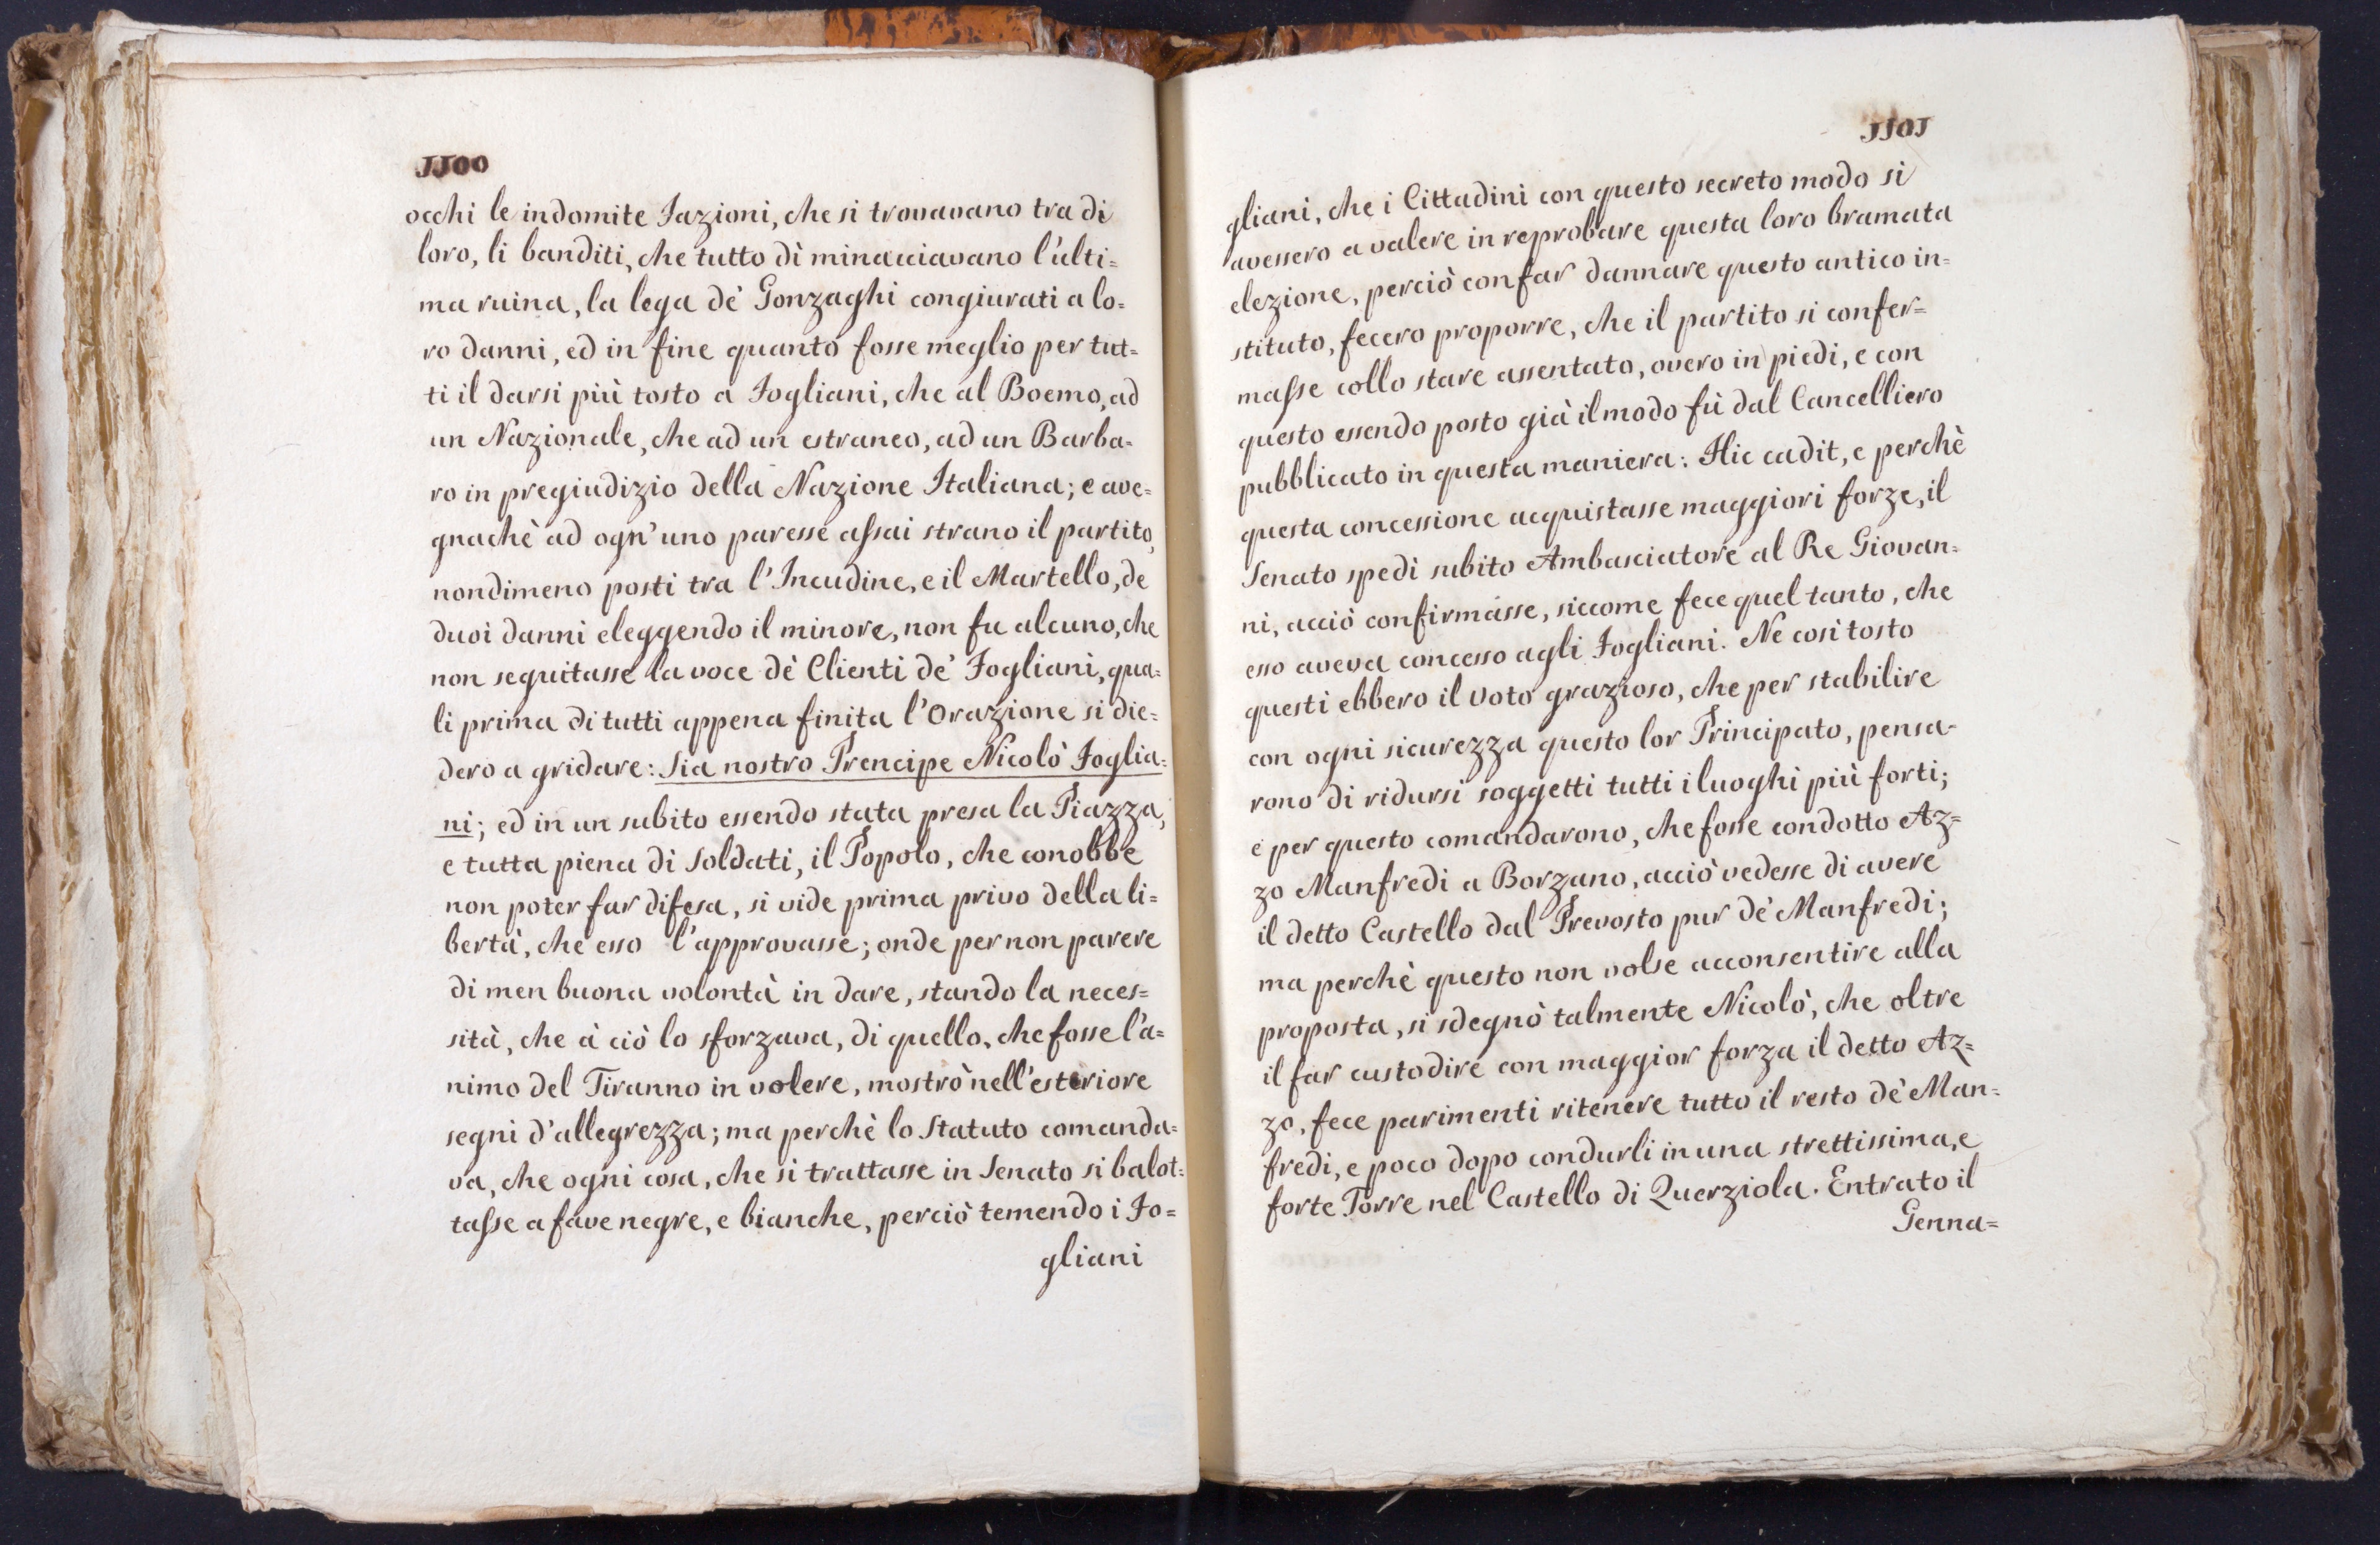 1100
occhi le indomite Fazioni, che si trovavano tra di
loro, li banditi, che tutto dì minacciavano l'ulti=
ma ruina, la lega de' Gonzaghi congiurati a lo=
ro danni, ed in fine quanto fosse meglio per tut=
ti il darsi più tosto a Fogliani, che al Boemo, ad
un Nazionale, che ad un estraneo, ad un Barba=
ro in pregiudizio della Nazione Italiana; e ave=
gnachè ad ogn'uno paresse assai strano il partito,
nondimeno posti tra l'Incudine, e il Martello, de
duoi danni eleggendo il minore, non fu alcuno, che
non seguitasse la voce de' Clienti de' Fogliani, qua=
li prima di tutti appena finita l'Orazione si die=
dero a gridare: Sia nostro Prencipe Nicolò Foglia=
ni; ed in un subito essendo stata presa la Piazza,
e tutta piena di Soldati, il Popolo, che conobbe
non poter far difesa, si vide prima privo della li=
bertà, che esso l'approvasse; onde per non parere
di men buona volontà in dare, stando la neces=
sità, che à ciò lo sforzava, di quello, che fosse l'a=
nimo del Tiranno in volere, mostrò nell'esteriore
segni d'allegrezza; ma perchè lo Statuto comanda=
va, che ogni cosa, che si trattasse in Senato si balot=
tasse a fave negre, e bianche, perciò temendo i Fo=
gliani
1101
gliani, che i Cittadini con questo secreto modo si
avessero a valere in reprobare questa loro bramata
elezione, perciò con far dannare questo antico in=
stituto, fecero proporre, che il partito si confer=
masse collo stare assentato, overo in piedi, e con
questo essendo posto già il modo fù dal Cancelliero
pubblicato in questa maniera: Hic cadit, e perchè
questa concessione acquistasse maggiori forze, il
Senato spedì subito Ambasciatore al Re Giovan=
ni, acciò confirmasse, siccome fece quel tanto, che
esso aveva concesso agli Fogliani. Ne così tosto
questi ebbero il voto grazioso, che per stabilire
con ogni sicurezza questo lor Principato, pensa-
rono di ridursi soggetti tutti i luoghi più forti;
e per questo comandarono, che fosse condotto Az=
zo Manfredi a Borzano, acciò vedesse di avere
il detto Castello dal Prevosto pur de' Manfredi;
ma perchè questo non volse acconsentire alla
proposta, si sdegnò talmente Nicolò, che oltre
il far custodire con maggior forza il detto Az=
zo, fece parimenti ritenere tutto il resto de' Man=
fredi, e poco dopo condurli in una strettissima, e
forte Torre nel Castello di Querziola. Entrato il
Genna=